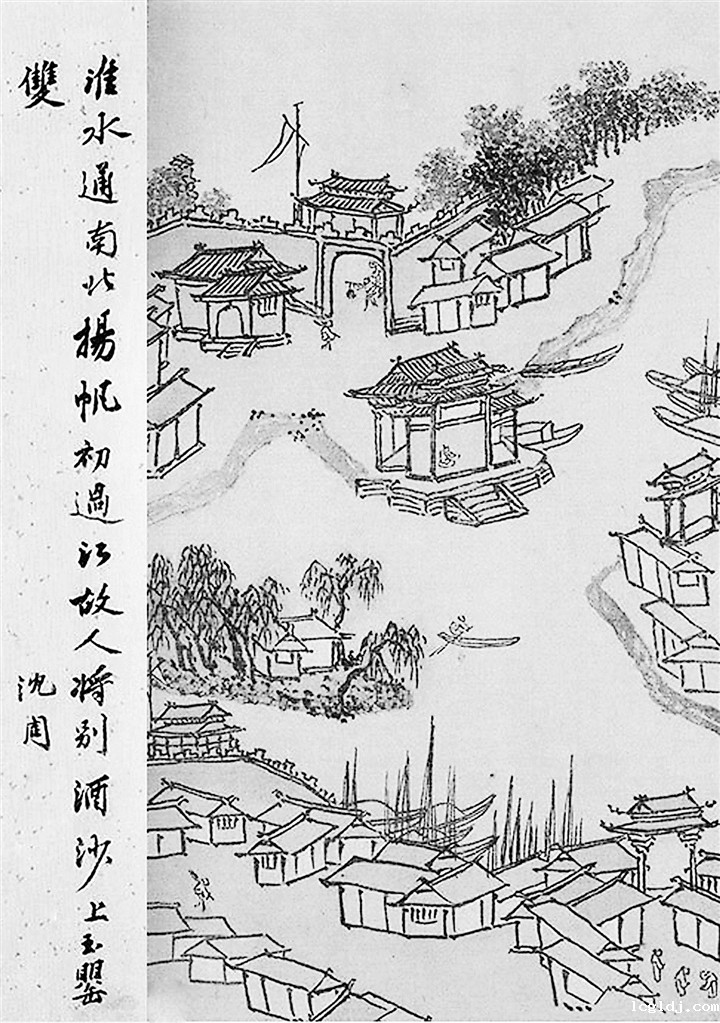 淮水通南北揚帆初過江故人将别酒沙上玉罌
雙
沈周
lcgldj.com